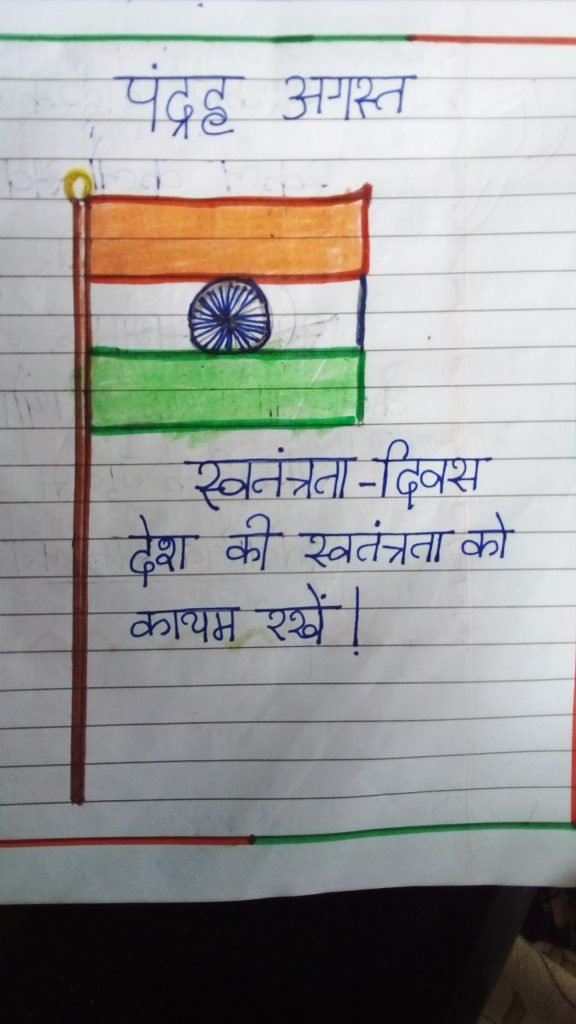 पंद्रह अगस्त
स्वतंत्रता-दिवस
देश की स्वतंत्रता को
कायम रखें!